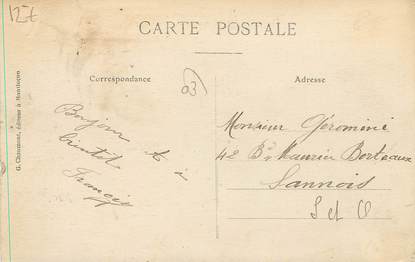 12€
CARTE POSTALE
Correspondance
03
Adresse
G. Chaumont, éditeur à Montluçon
Bonjour
et à
bientôt
Francis
Monsieur Géromini
42 Bd Maurice Berteaux
Sannois
S et O